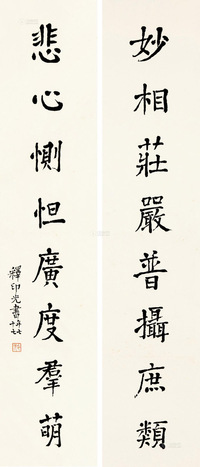 妙相莊嚴普攝庶類
悲心惻怛廣度羣萌
釋印光書
時年七十七